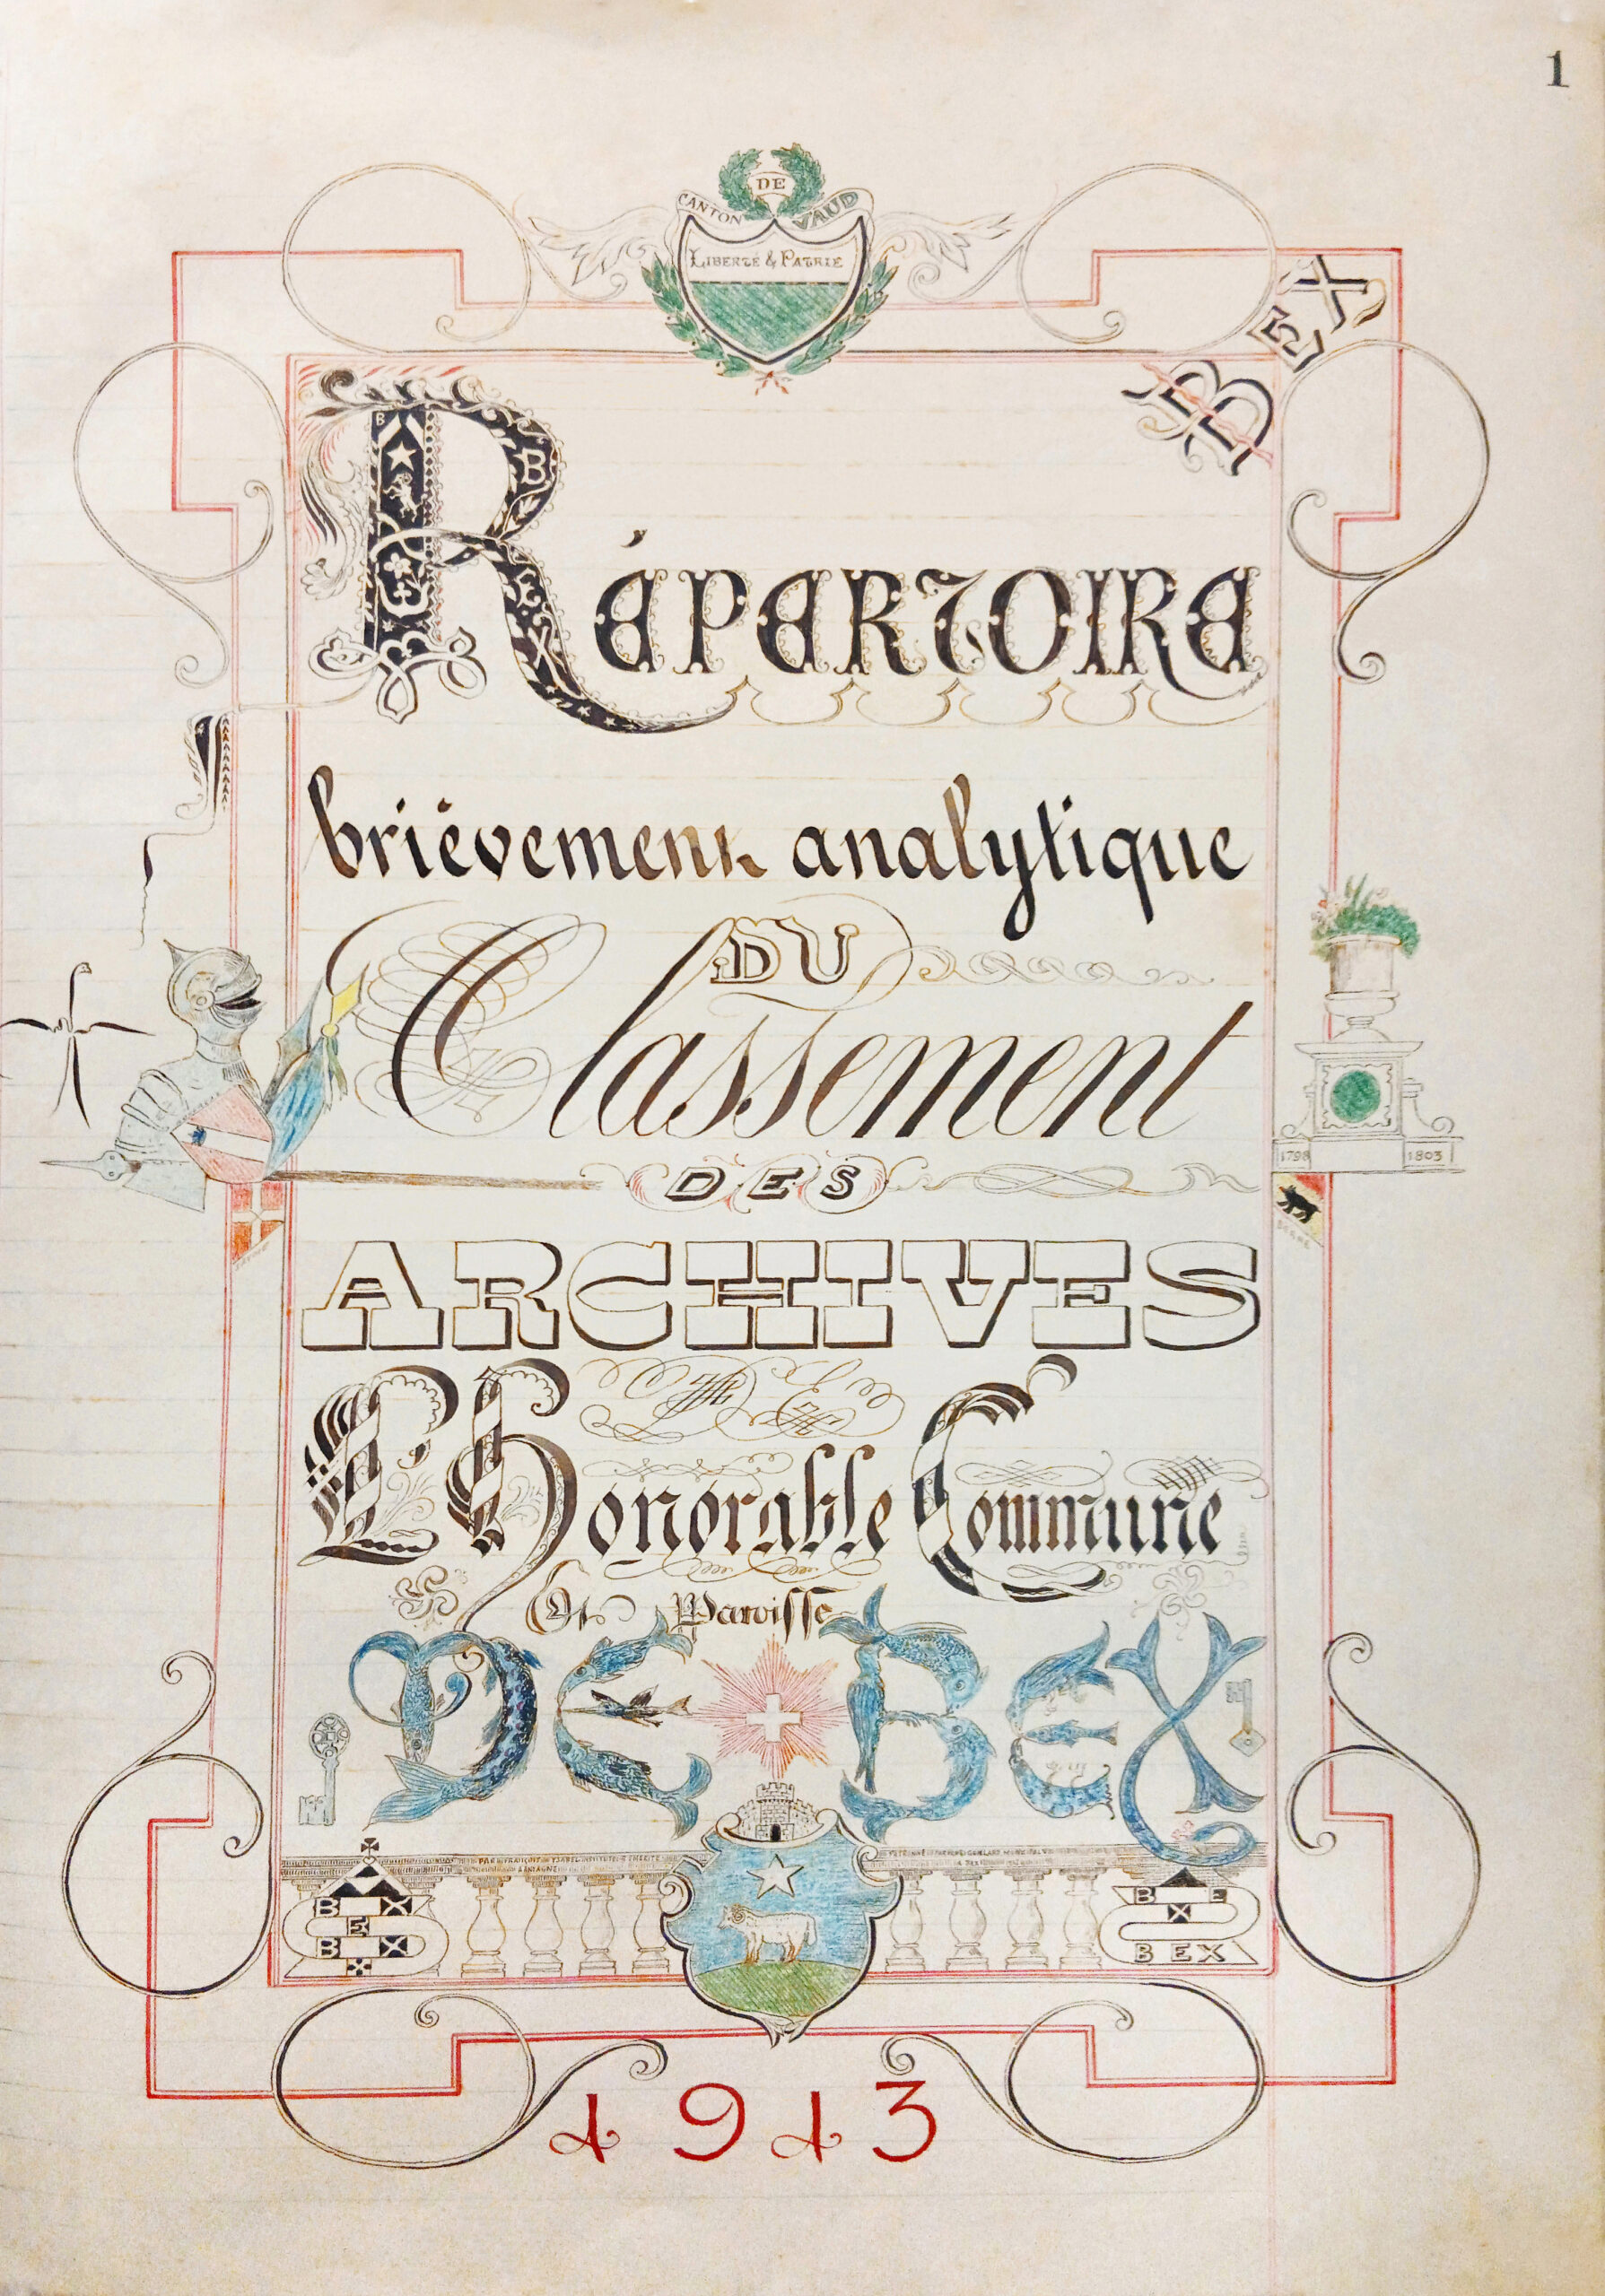 1
DE
CANTON VAUD
LIBERTÉ & PATRIE
BEX
RÉPERTOIRE
brièvement analytique
DU
Classement
1798 1803
DES
BERNE
ARCHIVES
DE
L'Honorable Commune
Et Paroisse
DE BEX
B X
E
B X
B E
X
BEX
1913